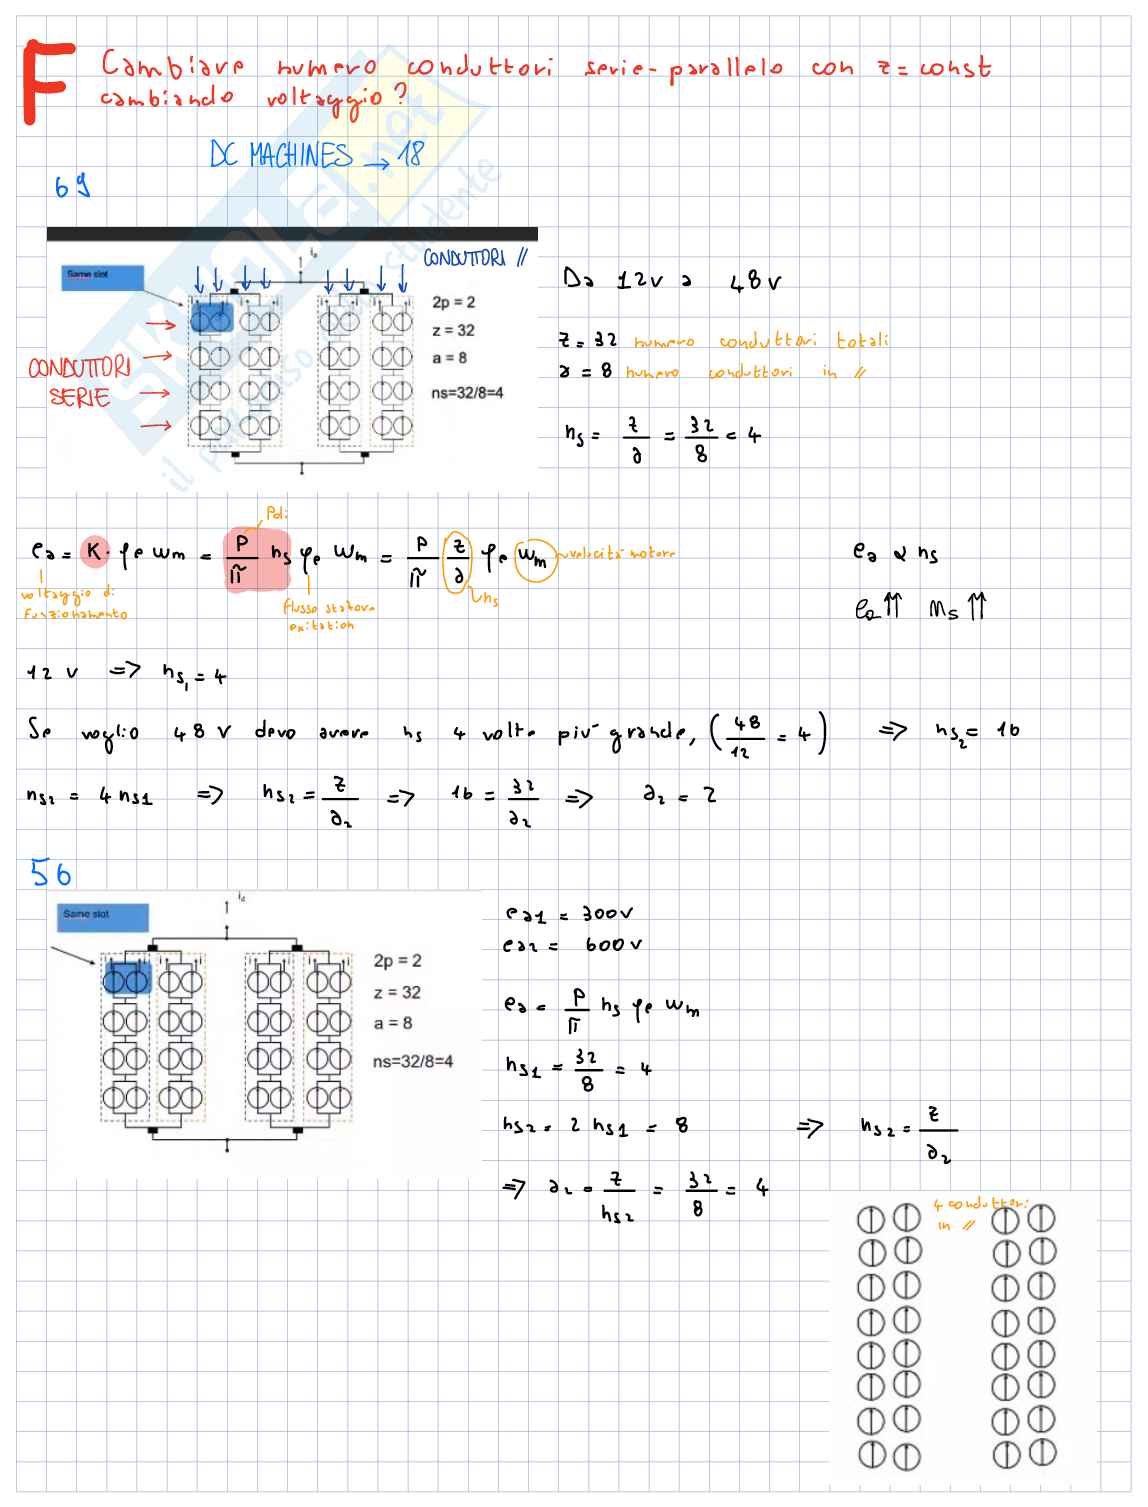 F Cambiare numero conduttori serie-parallelo con z=const
cambiando voltaggio?
DC MACHINES → 18
69
CONDUTTORI //
Same slot
CONDUTTORI
SERIE
2p = 2
z = 32
a = 8
ns=32/8=4
Da 12v a 48v
z = 32 numero conduttori totali
a = 8 numero conduttori in //
ns = z/a = 32/8 = 4
Poli
ea = K · φe ωm = P/π ns φe ωm = P/π z/a φe ωm velocità motore
voltaggio di
funzionamento
flusso statore
exitation
ns
ea ∝ ns
ea ↑↑ ns ↑↑
12 v => ns1 = 4
Se voglio 48 v devo avere ns 4 volte più grande, (48/12 = 4) => ns2 = 16
ns2 = 4 ns1 => ns2 = z/a2 => 16 = 32/a2 => a2 = 2
56
Same slot
ia
2p = 2
z = 32
a = 8
ns=32/8=4
ea1 = 300v
ea2 = 600v
ea = P/π ns φe ωm
ns1 = 32/8 = 4
ns2 = 2 ns1 = 8 => ns2 = z/a2
=> a2 = z/ns2 = 32/8 = 4
4 conduttori
in //
SKUOLA.net
il paradiso dello studente